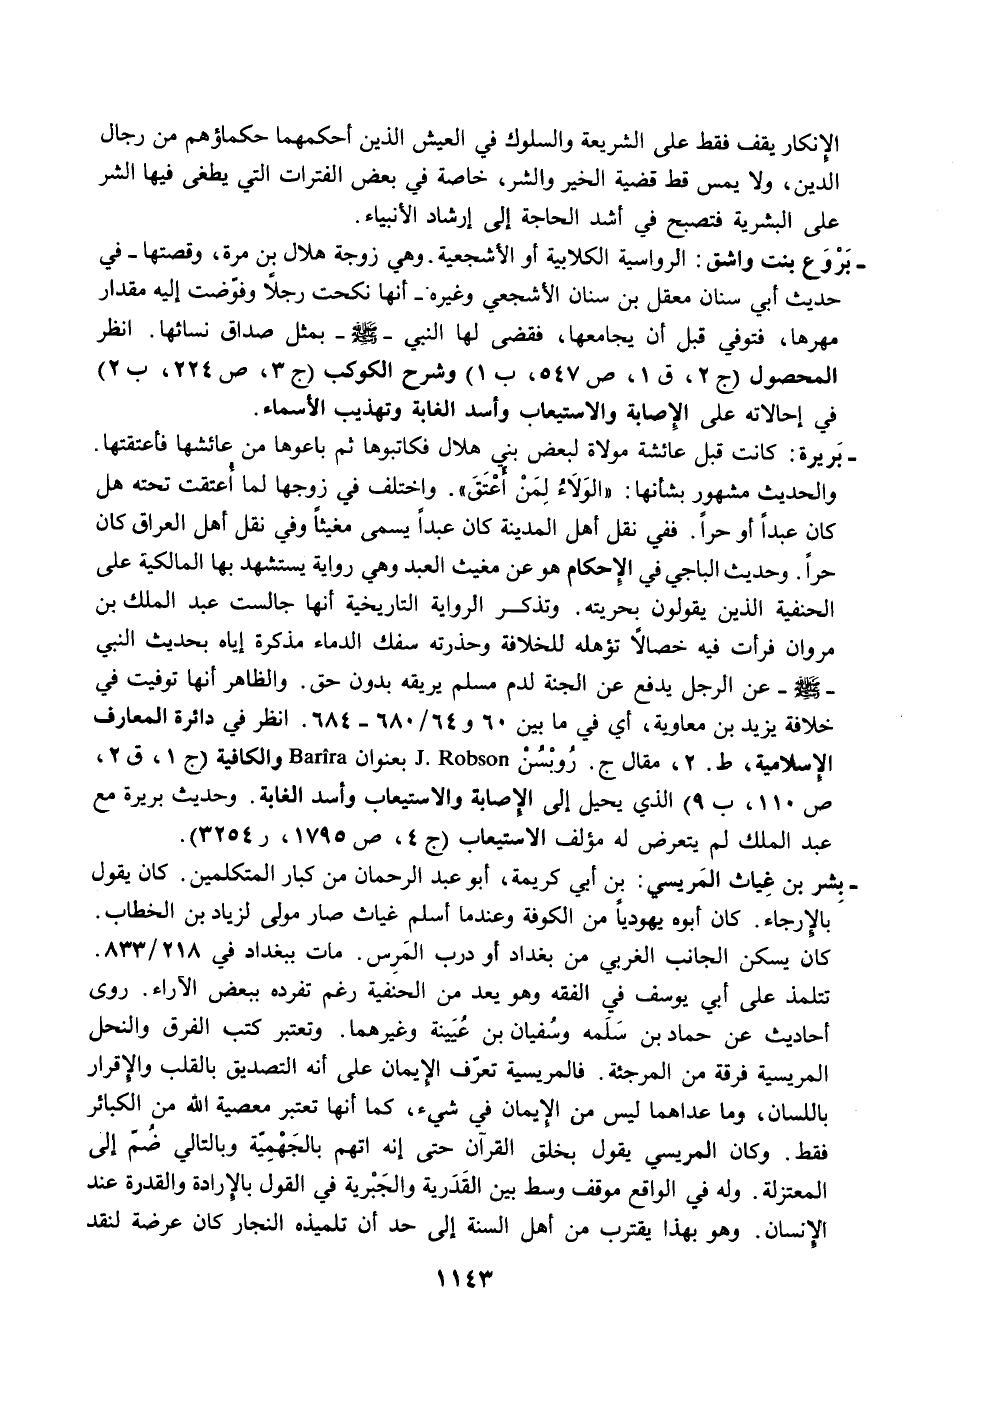 الإنكار يقف فقط على الشريعة والسلوك في العيش الذين أحكمهما حكماؤهم من رجال
الدين، ولا يمس قط قضية الخير والشر، خاصة في بعض الفترات التي يطغى فيها الشر
على البشرية فتصبح في أشد الحاجة إلى إرشاد الأنبياء.
- بَرْوَع بنت واشق: الرواسية الكلابية أو الأشجعية. وهي زوجة هلال بن مرة، وقصتها - في
حديث أبي سنان معقل بن سنان الأشجعي وغيره - أنها نكحت رجلاً وفوّضت إليه مقدار
مهرها، فتوفي قبل أن يجامعها، فقضى لها النبي - ﷺ - بمثل صداق نسائها. انظر
المحصول (ج ٢، ق ١، ص ٥٤٧، ب ١) وشرح الكوكب (ج ٣، ص ٢٢٤، ب ٢)
في إحالاته على الإصابة والاستيعاب وأسد الغابة وتهذيب الأسماء.
- بَريرة: كانت قبل عائشة مولاة لبعض بني هلال فكاتبوها ثم باعوها من عائشها فأعتقتها.
والحديث مشهور بشأنها: «الوَلَاءُ لِمَنْ أَعْتَقَ». واختلف في زوجها لما أُعتقت تحته هل
كان عبداً أو حراً. ففي نقل أهل المدينة كان عبداً يسمى مغيثاً وفي نقل أهل العراق كان
حراً. وحديث الباجي في الإحكام هو عن مغيث العبد وهي رواية يستشهد بها المالكية على
الحنفية الذين يقولون بحريته. وتذكر الرواية التاريخية أنها جالست عبد الملك بن
مروان فرأت فيه خصالاً تؤهله للخلافة وحذرته سفك الدماء مذكرة إياه بحديث النبي
- ﷺ - عن الرجل يدفع عن الجنة لدم مسلم يريقه بدون حق. والظاهر أنها توفيت في
خلافة يزيد بن معاوية، أي في ما بين ٦٠ و٦٨٠/٦٤ - ٦٨٤. انظر في دائرة المعارف
الإسلامية، ط. ٢، مقال ج. رُوبْسُنْ J. Robson بعنوان Barîra والكافية (ج ١، ق ٢،
ص ١١٠، ب ٩) الذي يحيل إلى الإصابة والاستيعاب وأسد الغابة. وحديث بريرة مع
عبد الملك لم يتعرض له مؤلف الاستيعاب (ج ٤، ص ١٧٩٥، ر ٣٢٥٤).
- بِشر بن غِياث المَريسي: بن أبي كريمة، أبو عبد الرحمان من كبار المتكلمين. كان يقول
بالإرجاء. كان أبوه يهودياً من الكوفة وعندما أسلم غياث صار مولى لزياد بن الخطاب.
كان يسكن الجانب الغربي من بغداد أو درب المَرِس. مات ببغداد في ٨٣٣/٢١٨.
تتلمذ على أبي يوسف في الفقه وهو يعد من الحنفية رغم تفرده ببعض الآراء. روى
أحاديث عن حماد بن سَلَمه وسُفيان بن عُيَينة وغيرهما. وتعتبر كتب الفرق والنحل
المريسية فرقة من المرجئة. فالمريسية تعرّف الإيمان على أنه التصديق بالقلب والإقرار
باللسان، وما عداهما ليس من الإيمان في شيء، كما أنها تعتبر معصية الله من الكبائر
فقط. وكان المريسي يقول بخلق القرآن حتى إنه اتهم بالجَهْمِيّة وبالتالي ضُمّ إلى
المعتزلة. وله في الواقع موقف وسط بين القَدَرية والجَبْرية في القول بالإرادة والقدرة عند
الإنسان. وهو بهذا يقترب من أهل السنة إلى حد أن تلميذه النجار كان عرضة لنقد
١١٤٣